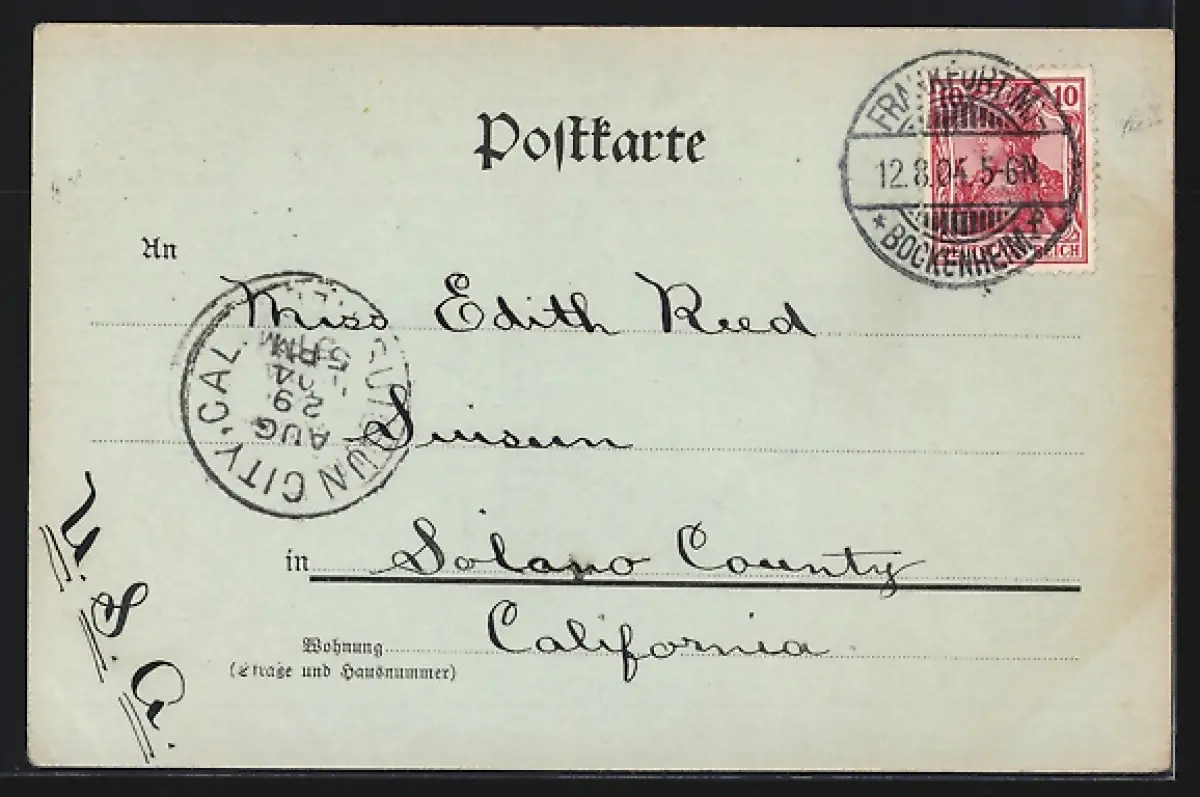 Postkarte
FRANKFURT (M.)
12.8.04. 5-6N.
* BOCKENHEIM *
10 10
REICH
An
Miss Edith Reed
Suisun
SUISUN CITY, CAL.
AUG
29
5 AM
04
in Solano County
California
Wohnung
(Straße und Hausnummer)
U. S. A.